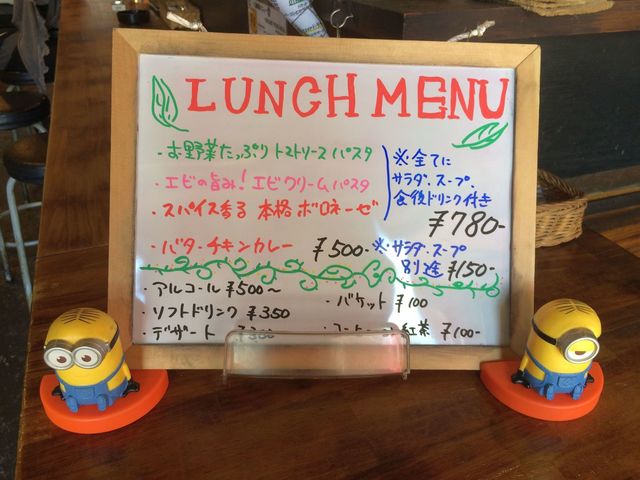 LUNCH MENU
・お野菜たっぷり トマトソース パスタ
・エビの旨み！エビクリームパスタ
・スパイス香る 本格ボロネーゼ
※全てに
サラダ・スープ、
食後ドリンク付き
¥780-
・バターチキンカレー ¥500-
※サラダ・スープ
別途 ¥150-
・アルコール ¥500〜
・ソフトドリンク ¥350
・デザート
・バケット ¥100
紅茶 ¥100-